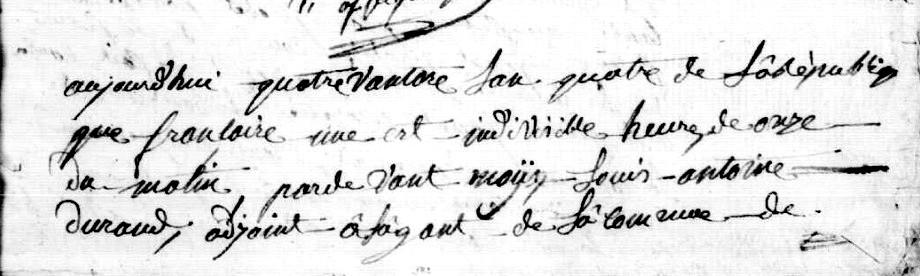 aujourdhui quatre vantose lan quatre de Lâ Républi
que francoise une est indivisible heure de onze
du matin pardevant moÿ Louis-antoine
durand, adjoint â Lâgant de Lâ Commune de